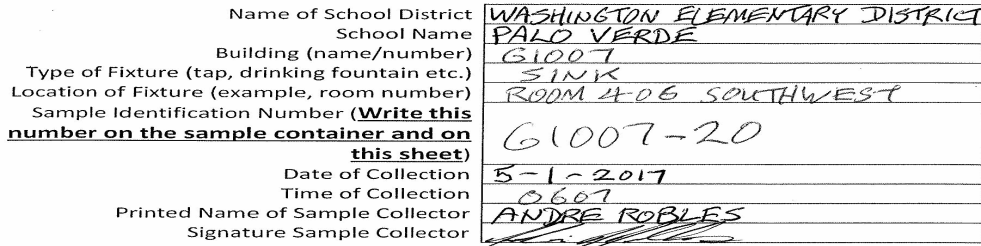 Name of School District WASHINGTON ELEMENTARY DISTRICT
School Name PALO VERDE
Building (name/number) G1007
Type of Fixture (tap, drinking fountain etc.) SINK
Location of Fixture (example, room number) ROOM 406 SOUTHWEST
Sample Identification Number (Write this
number on the sample container and on
this sheet) G1007-20
Date of Collection 5-1-2017
Time of Collection 0607
Printed Name of Sample Collector ANDRE ROBLES
Signature Sample Collector